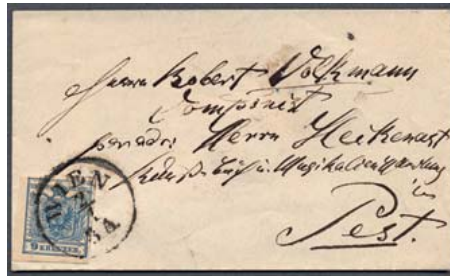 Herrn Robert Volkmann
Componist
per adr: Herrn Heckenast
Kunst- Buch u. Musikalienhandlung
in
Pest.
WIEN
2
54
9 KREUZER